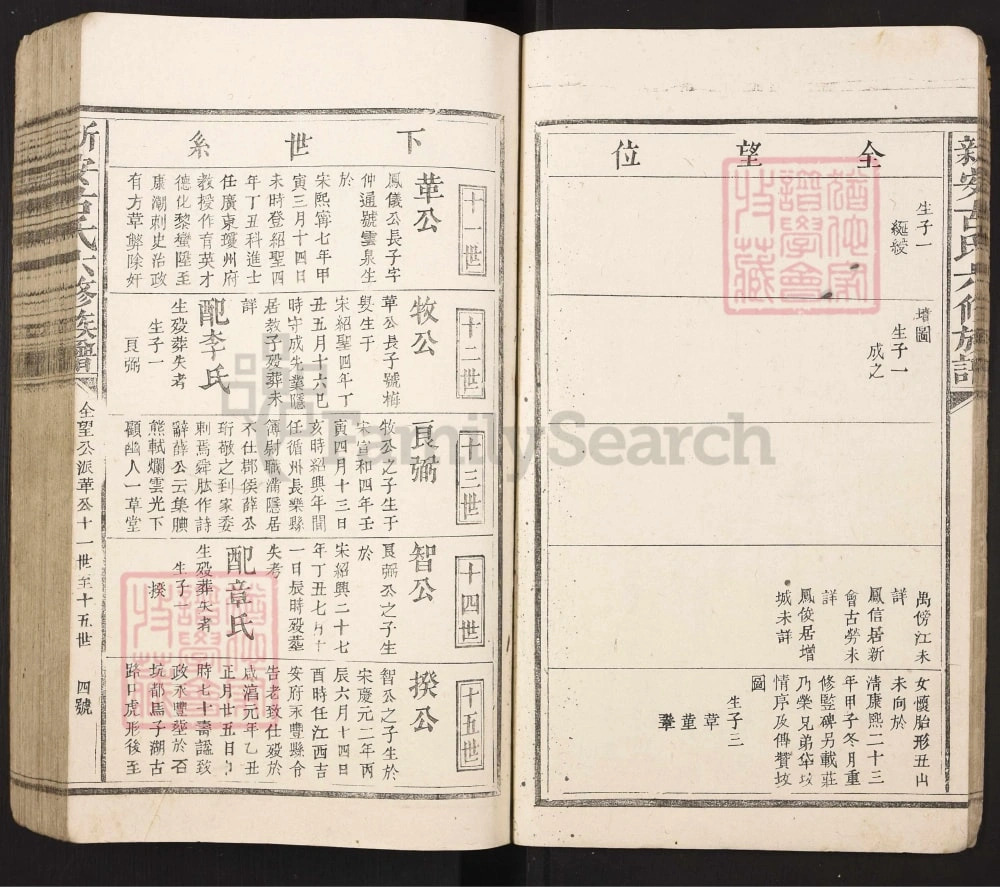 新安古氏六修族譜
全望位
生子一
綖綾
增圖
生子一
成之
禺傍江未
詳
鳳信居新
會古勞未
詳
鳳俊居增
城未詳
女懷胎形丑山
未向於
清康熙二十三
年甲子冬月重
修監碑另載莊
乃榮兄弟
情序及傳贊坟
圖
生子三
草
董
下世系
十一世
華公
鳳儀公長子字
仲通號雲泉生
於
宋熙寧七年甲
寅三月十四日
未時登紹聖四
年丁丑科進士
任廣東瓊州府
教授作育英才
德化黎蠻陞至
康潮刺史治政
有方草弊除奸
十二世
牧公
華公長子號梅
叟生于
宋紹聖四年丁
丑五月十六巳
時守成先業隱
居教子歿葬未
詳
配李氏
生歿葬失考
生子一
頁弼
十三世
頁弼
牧公之子生于
宋宣和四年壬
寅四月十三日
亥時紹興年間
任循州長樂縣
簿尉職滿隱居
不仕郡侯薛公
珩敬之到家委
刺焉舜肱作詩
辭薛公云集腆
熊軾爛雲光下
顧幽人一草堂
十四世
智公
頁弼公之子生
於
宋紹興二十七
年丁丑七月十
一日辰時歿葬
失考
配章氏
生歿葬失考
生子一
揆
十五世
揆公
智公之子生於
宋慶元二年丙
辰六月十四日
酉時任江西吉
安府永豐縣令
告老致仕歿於
咸淳元年乙丑
正月廿五日
時七十壽謚致
政永豐塟於石
坑都馬子湖古
路口虎形後至
新安古氏六修族譜
全望公派華公十一世至十五世
四號
FamilySearch